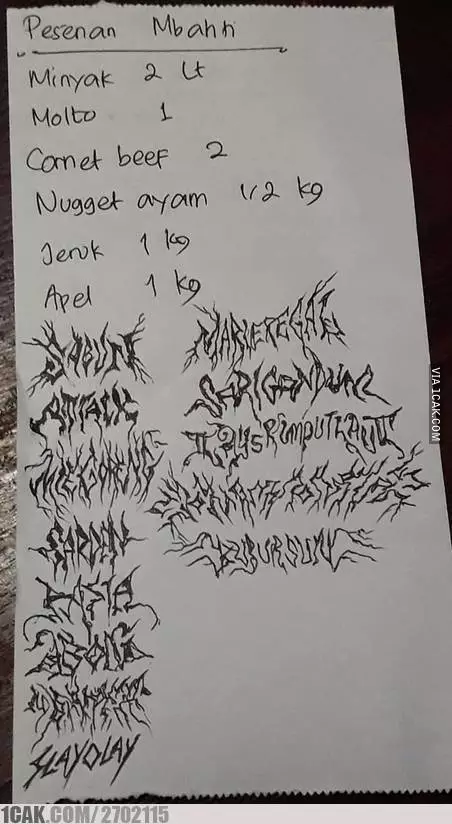 Pesenan Mbahh
Minyak 2 Lt
Molto 1
Cornet beef 2
Nugget ayam 1/2 kg
Jeruk 1 kg
Apel 1 kg
SABUN
ATTACK
MIE GORENG
SARDEN
PASTA
ABON
SLAYOLAY
MARIE REGAL
SARI GANDUM
BUBUR SUN
VIA 1CAK.COM
1CAK.COM/2702115